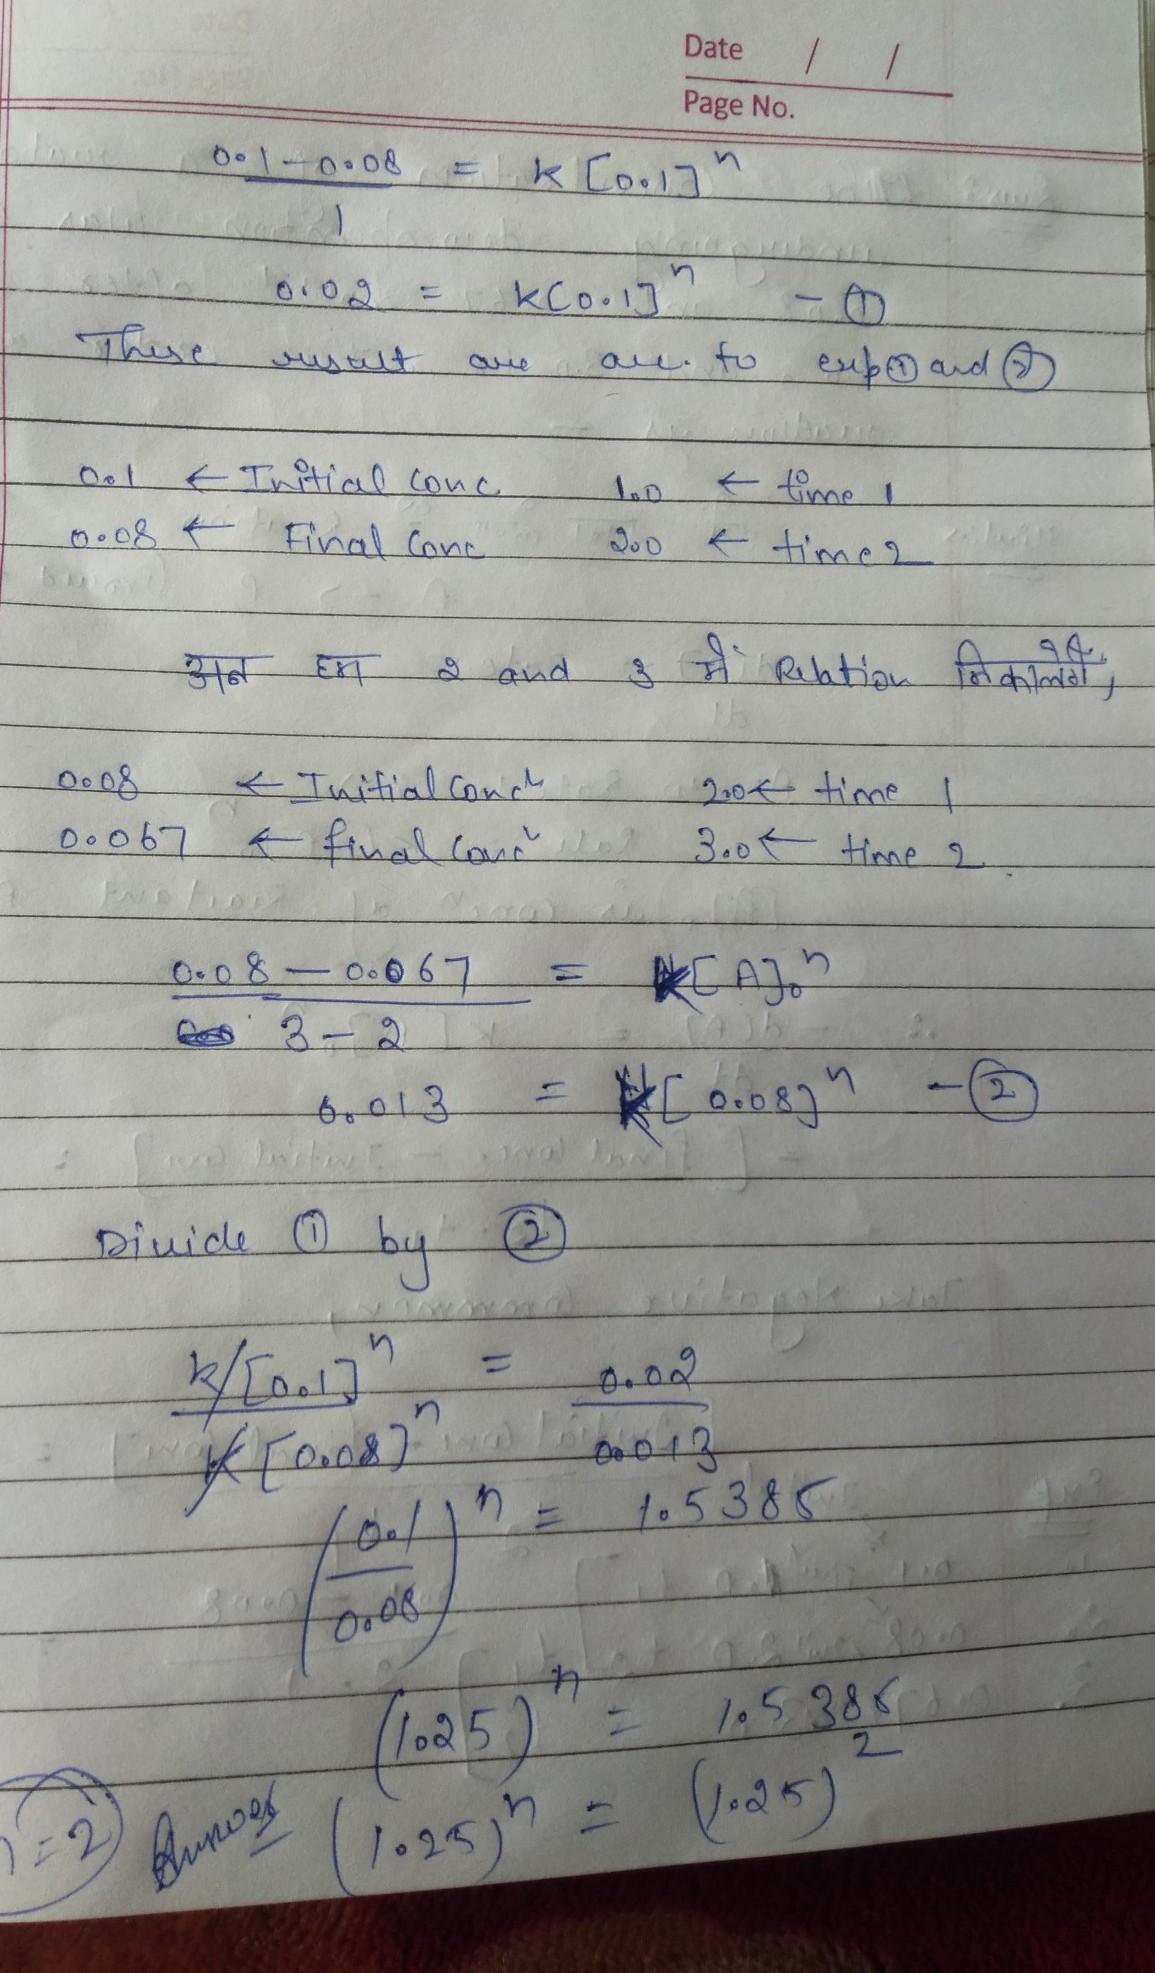 Date / /
Page No.
0.1-0.08 = K [0.1]^n
1
0.02 = K[0.1]^n - ①
These result are acc. to exp ① and ②
0.1 ← Initial conc 1.0 ← time 1
0.08 ← Final conc 2.0 ← time 2
अब हम 2 and 3 में Relation निकालेंगे,
0.08 ← Initial conc^n 2.0 ← time 1
0.067 ← final conc^n 3.0 ← time 2.
0.08 - 0.067 = K[A]₀^n
3 - 2
0.013 = K[0.08]^n - ②
Divide ① by ②
K[0.1]^n = 0.02
K[0.08]^n 0.013
(0.1 / 0.08)^n = 1.5385
(1.25)^n = 1.5385
n = 2 Answer (1.25)^n = (1.25)^2